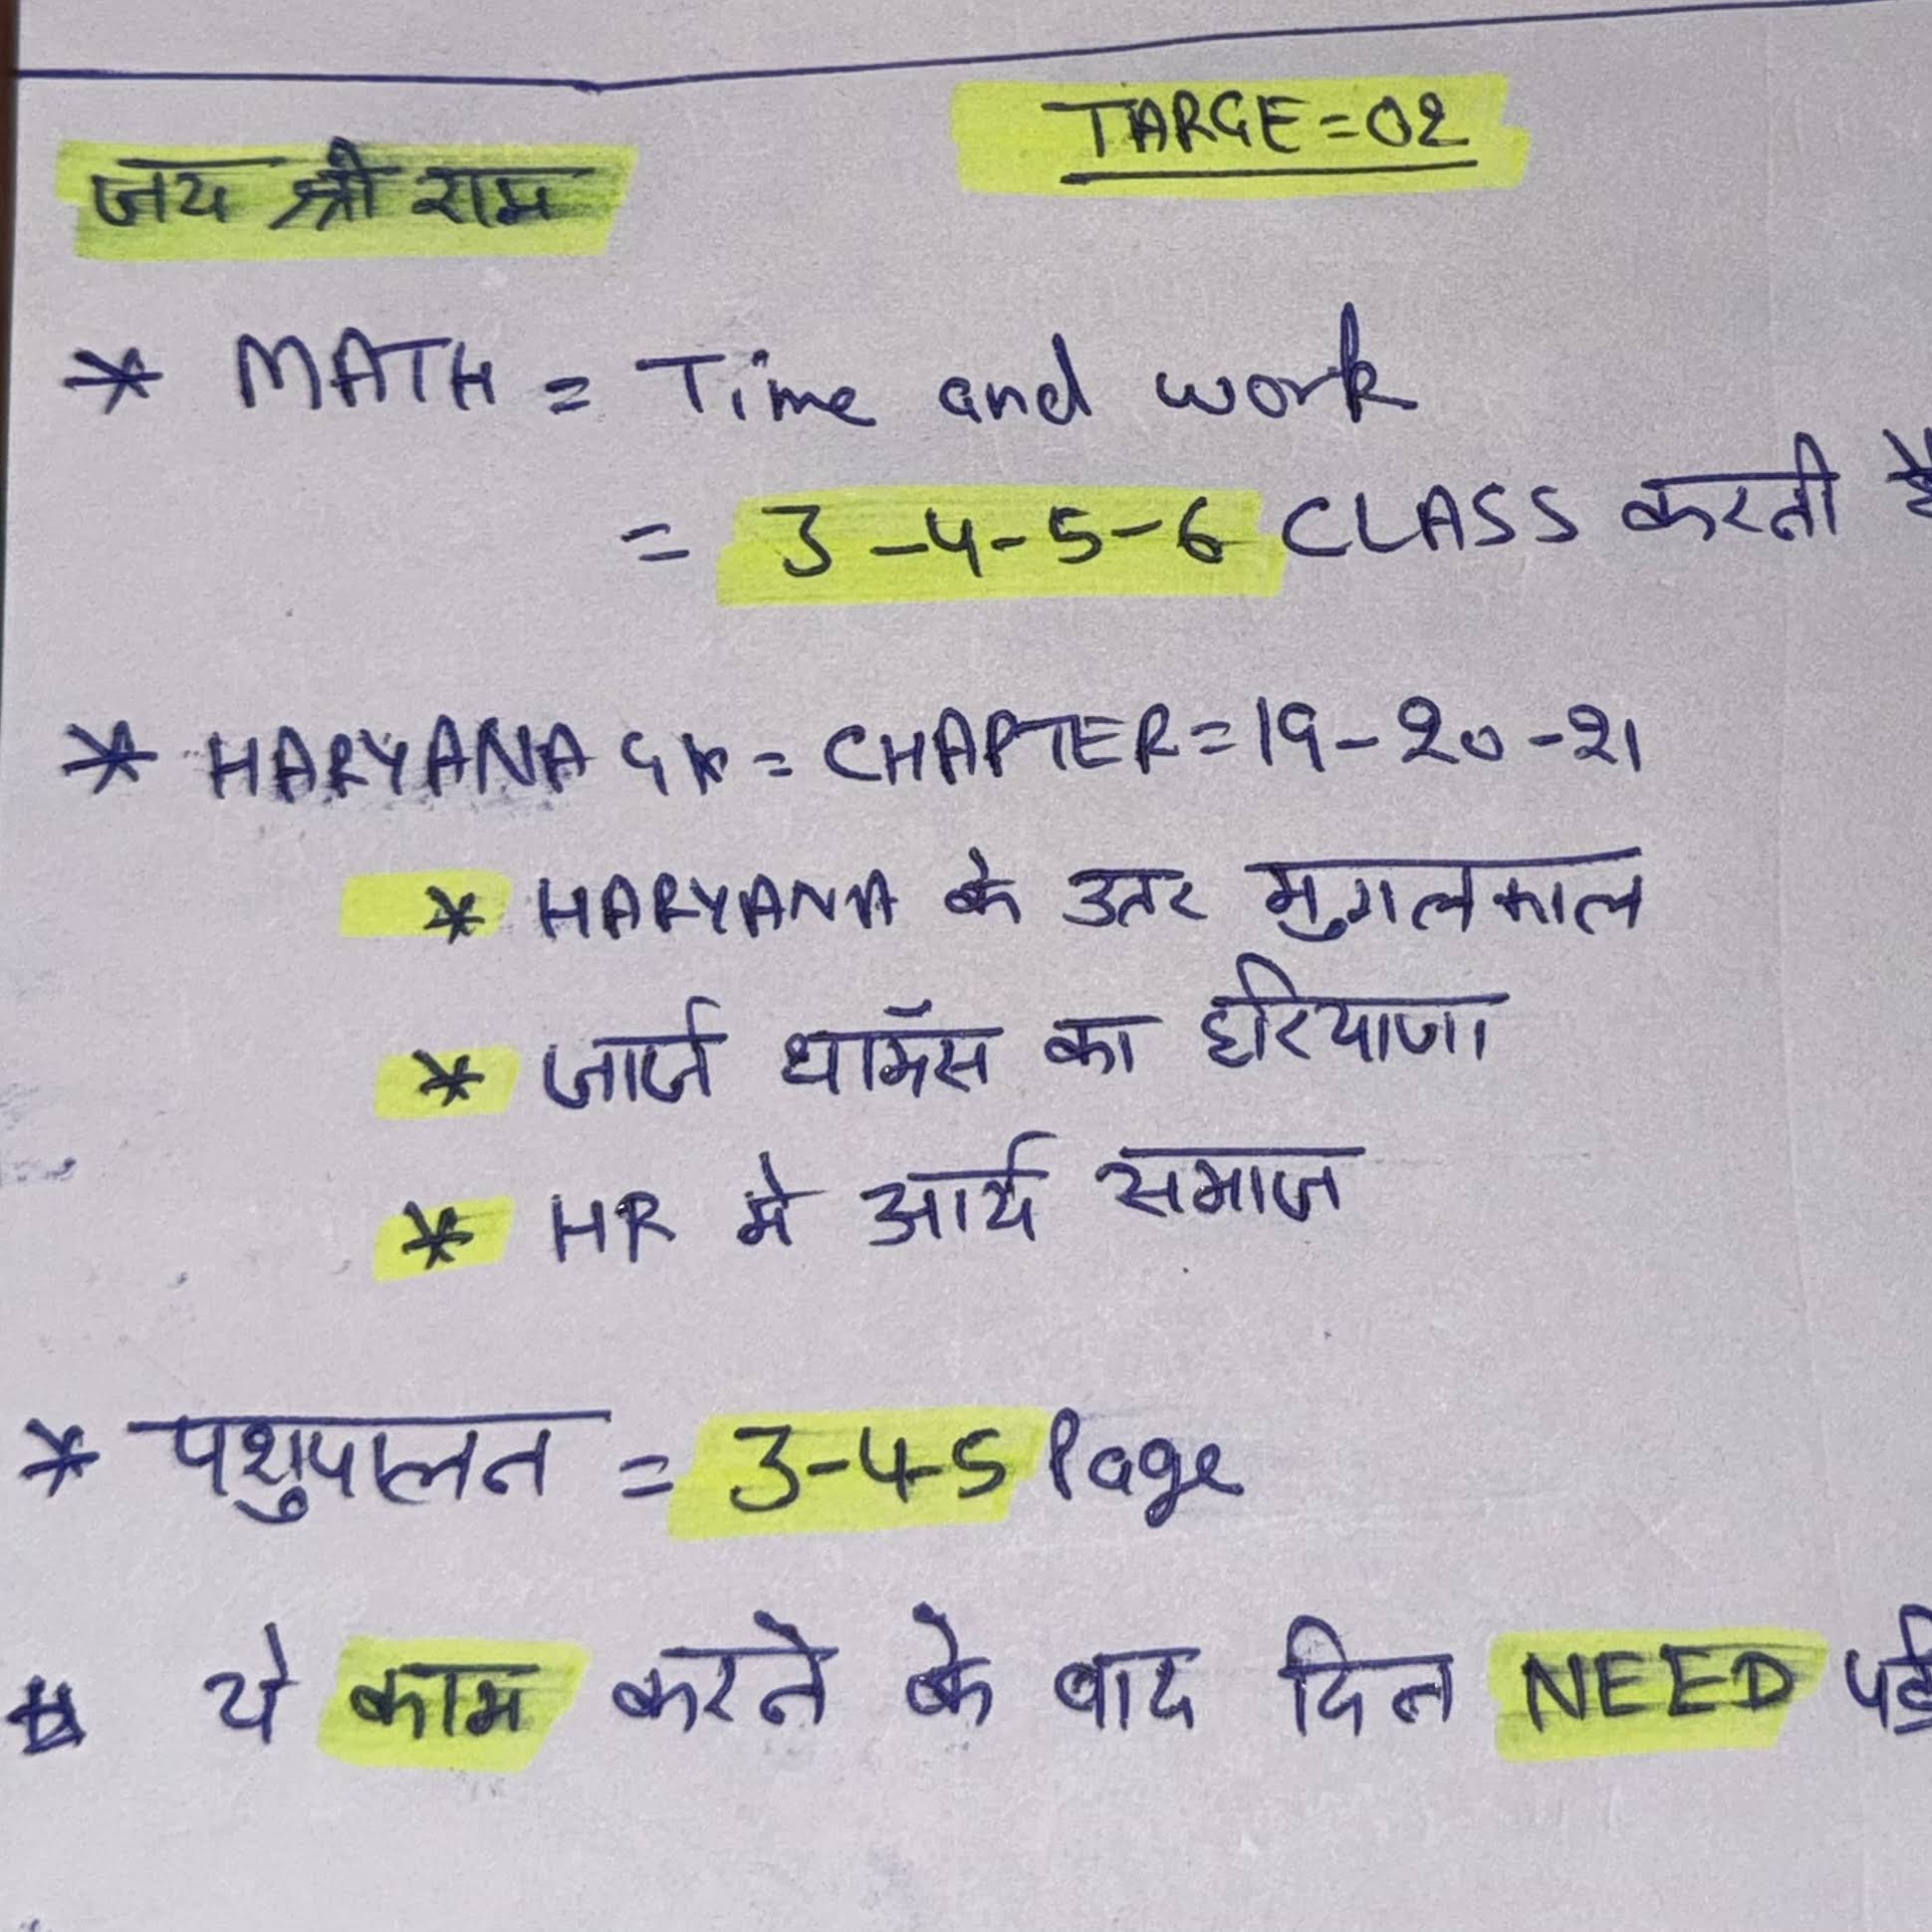 TARGE=02
जय श्री राम
* MATH = Time and work
= 3-4-5-6 CLASS करनी है
* HARYANA GK = CHAPTER=19-20-21
* HARYANA के उतर मुगलकाल
* जार्ज थॉमस का हरियाणा
* HR मे आर्य समाज
* पशुपालन = 3-4-5 Page
* ये काम करने के बाद दिन NEED